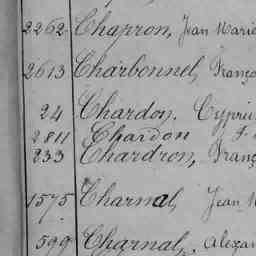 2262 Chapron, Jean Marie
2613 Charbonnel, França
24 Chardon. Cyprie
2811 Chardon
233 Chardron, Franç
1575 Charnal, Jean
599 Charnal, Alexan